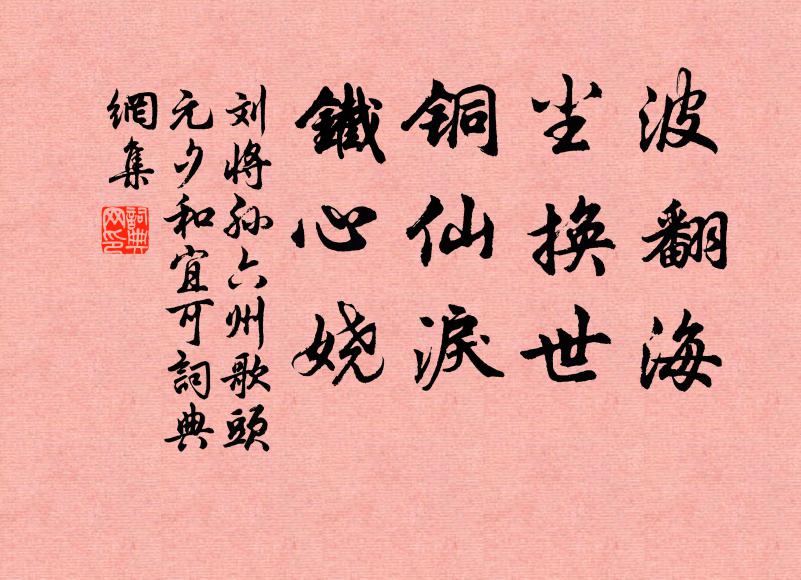 波翻海
尘换世
铜仙淚
鐵心娆
刘将孙六州歌頭
元夕和宜可詞典
網集
詞典网印